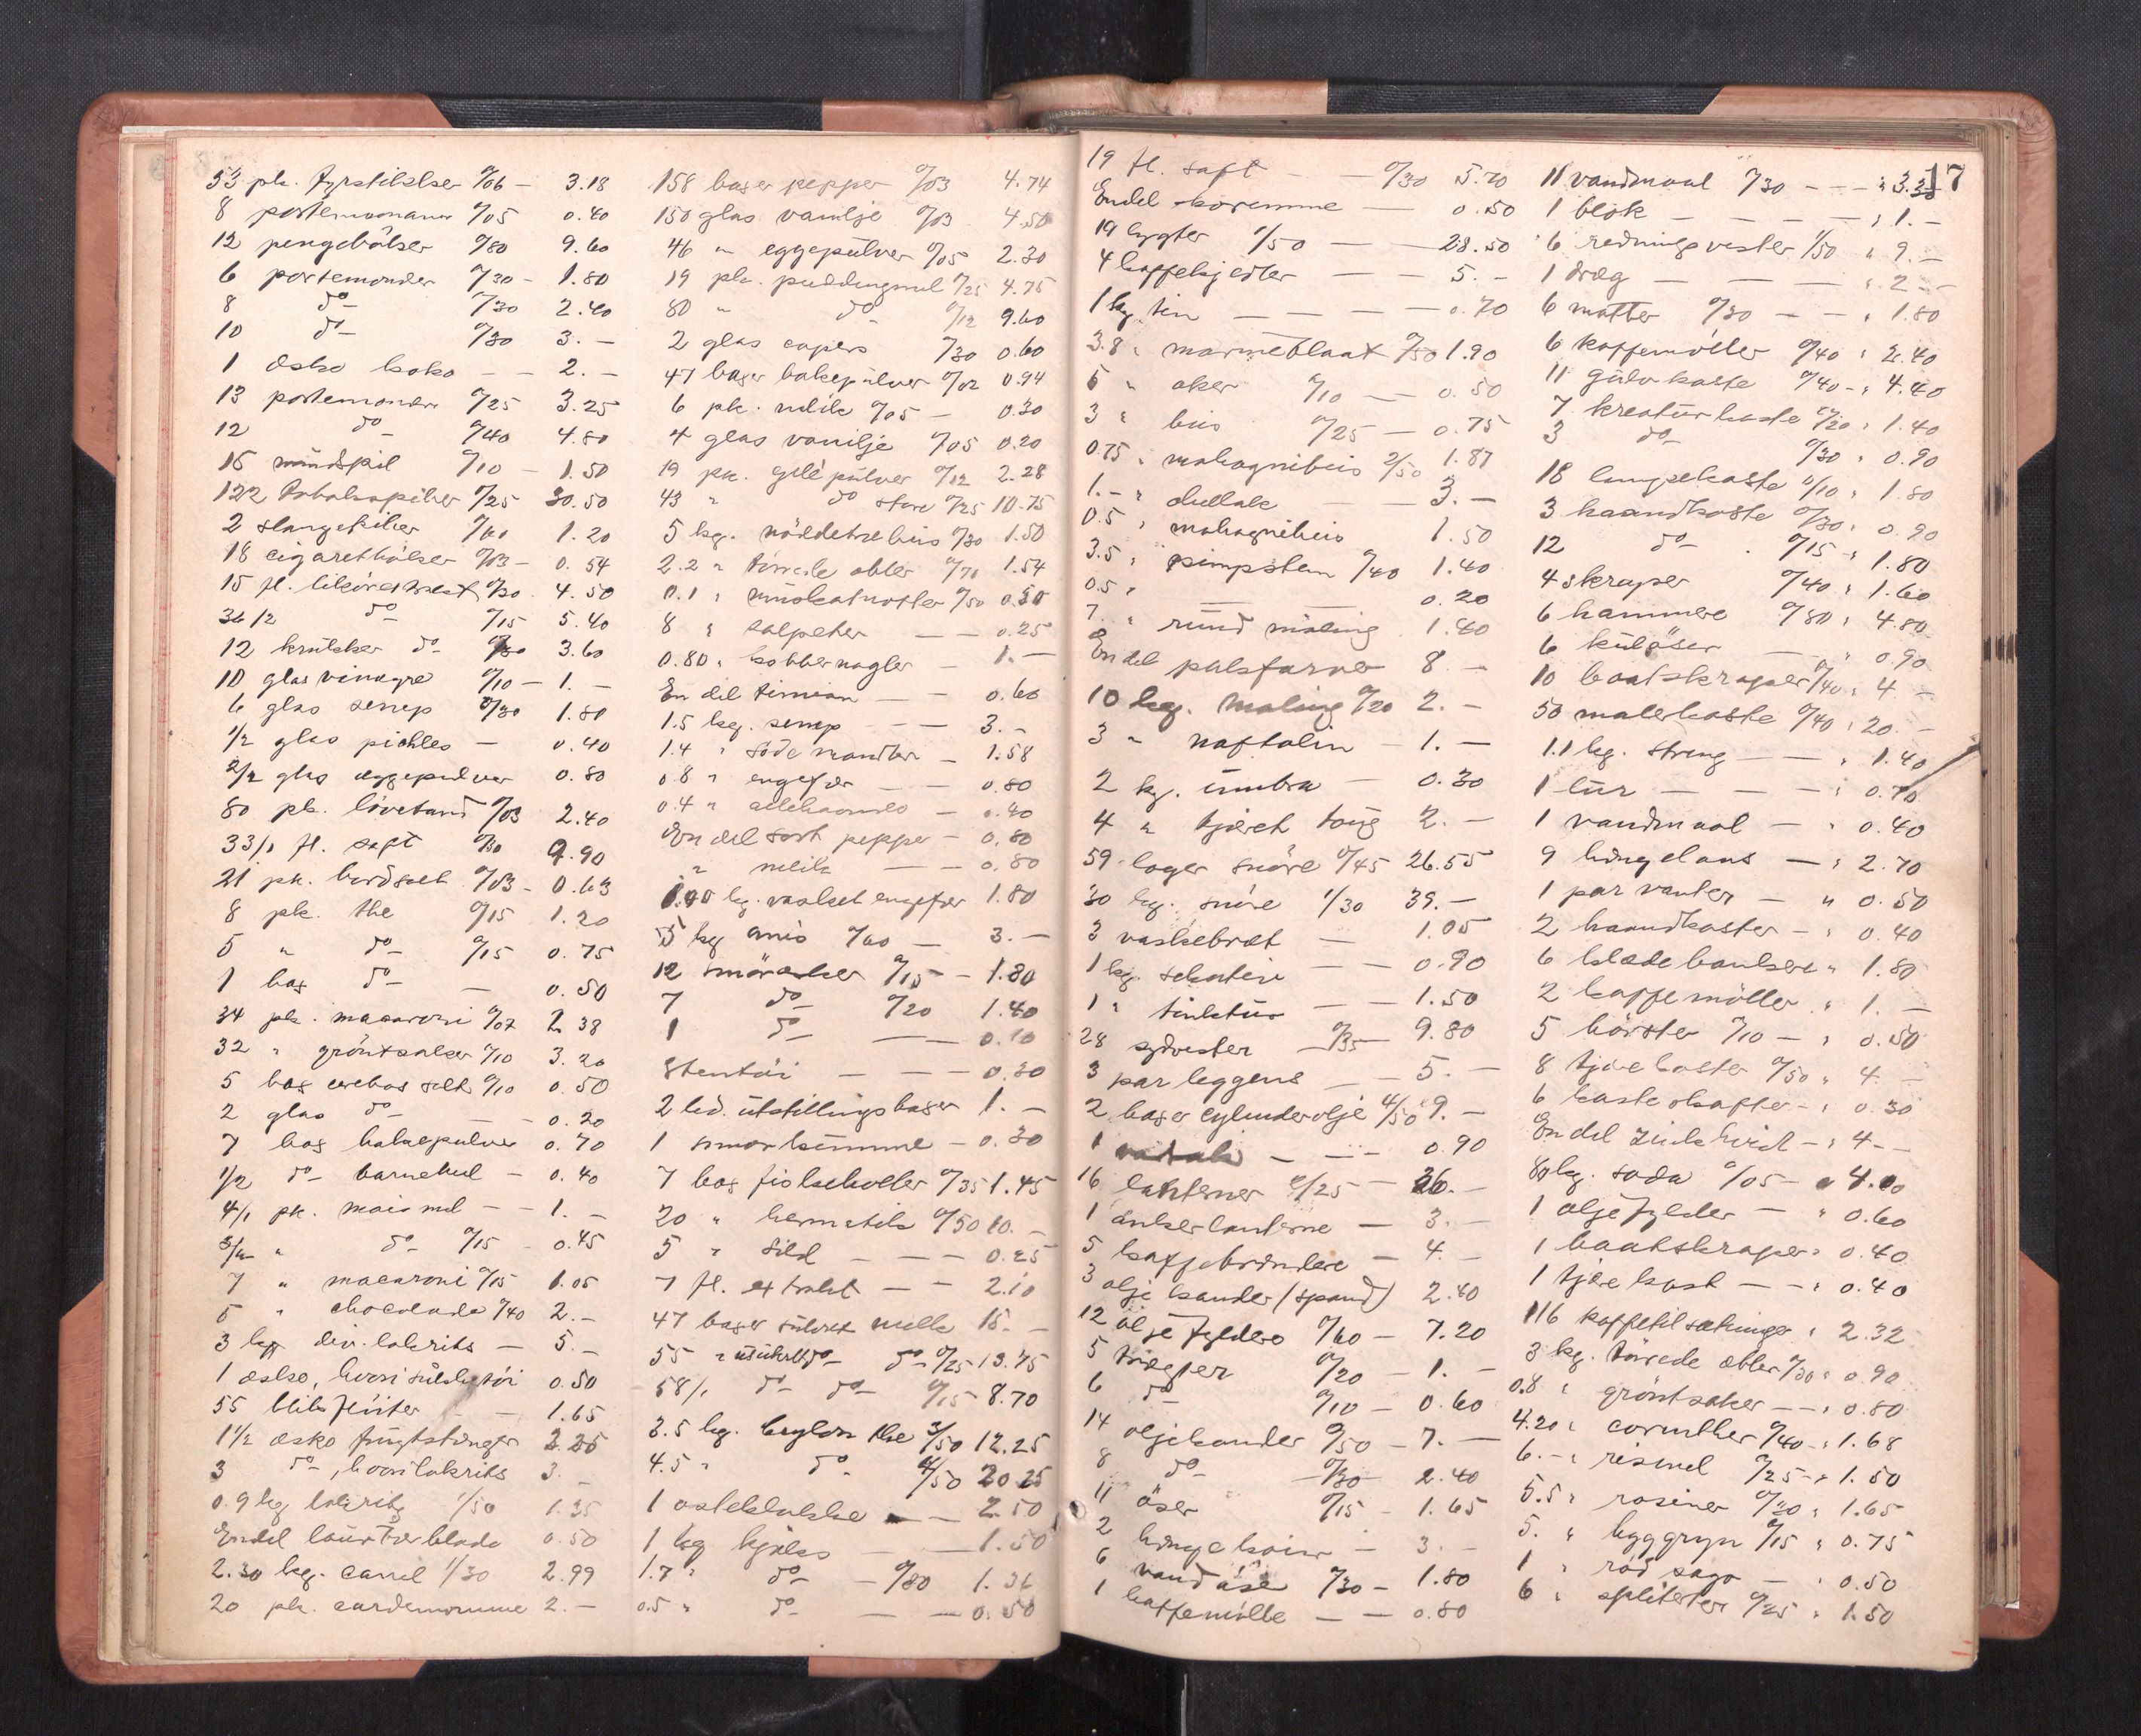 53 pk. fyrstikker %06 - 3.18
8 portemonaner %05 0.40
12 pengebölser %80 9.60
6 portemonder %30 - 1.80
8 do %30 2.40
10 do %30 3.-
1 æske koko - - 2.-
13 portemonder %25 3.25
12 do %40 4.80
15 mundspil %10 - 1.50
122 Tobakspiber %25 30.50
2 slangepiber %60 1.20
18 cigarethölser %03 - 0.54
15 fl. likörextrakt %30 4.50
36 1/2 do %15 5.40
12 krukker do %30 3.60
10 glas vinagre %10 - 1.-
6 glas senep %30 1.80
1/2 glas pickles - 0.40
2/2 glas æggepulver 0.80
80 pk. lövetand %03 2.40
33/1 fl. saft %30 9.90
21 pk. bordsalt %03 - 0.63
8 pk. the %15 1.20
5 " do %15 0.75
1 box do - 0.50
34 pk. macaroni %07 2.38
32 " gröntsaker %10 3.20
5 box cerebos salt %10 0.50
2 glas do - 0.20
7 box bakepulver 0.70
1/2 do barnemel - 0.40
4/1 pk. maismel - - 1.-
3/2 " do %15 - 0.45
7 " macaroni %15 1.05
5 " chocolade %40 2.-
3 kg div. lakrits - 5.-
1 æske, hvori sukkertöi 0.50
55 blikflöiter - 1.65
1 1/2 æske frugtstænger 2.25
3 do, hvori lakrits 3.-
0.9 kg lakrits 1/50 1.35
Endel laurbærblade 0.50
2.30 kg. canel 1/30 2.99
20 pk. cardemomme 2.-
158 baser pepper %03 4.74
150 glas vanilje %03 4.50
46 " eggepulver %05 2.30
19 pk. puddingmel %25 4.75
80 " do %12 9.60
2 glas capers %30 0.60
47 baser bakepulver %02 0.94
6 pk. nelik %05 - 0.30
4 glas vanilje %05 0.20
19 pk. gelépulver %12 2.28
43 " do store %25 10.75
5 kg. nöddetrebeis %30 1.50
2.2 " törrede æbler %70 1.54
0.1 " muskatnötter %50 0.50
8 " salpeter - - 0.25
0.80 " kobbernagler - 1.-
En del timian - - 0.60
1.5 kg. senep - - 3.-
1.4 " söde mandler - 1.58
0.8 " engefær - - 0.80
0.4 " allehaande - 0.40
En del sort pepper - 0.80
" nelik - - 0.80
1.80 kg. vasket engefær 1.80
5 kg anis %60 - 3.-
12 smöræsker %15 - 1.80
7 do %20 1.40
1 do - - 0.10
Stentöi - - - 0.30
2 led. utstillingsbaser 1.-
1 smörkrumme - 0.30
7 box fiskeboller %35 1.45
20 " hermetik %50 10.-
5 " sild - - - 0.25
7 fl. extrakt - - 2.10
47 baser sukret melk 15.-
55 " usukret do do %25 13.75
58/1 do do %15 8.70
3.5 kg. Ceylon the 3/50 12.25
4.5 " do 4/50 20.25
1 osteklokke - - 2.50
1 kg kjæks - - 1.50
1.7 " do - %80 1.36
0.5 " do - - 0.50
17
19 fl. saft - - %30 5.70
Endel skoremme - 0.50
19 lygter 1/50 - - 28.50
4 kaffekjedler - - 5.-
1 kg. tin - - - - 0.70
3.8 " marineblaat %50 1.90
5 " oker %10 - 0.50
3 " beis %25 - 0.75
0.75 " mahognibeis 2/50 1.87
1.- " chellak - - 3.-
0.5 " mahognibeis 1.50
3.5 " pimpsten %40 1.40
0.5 " - - 0.20
7. " rund maling 1.40
En del pulsfarver 8.-
10 kg. maling %20 2.-
3 " naftalin - 1.-
2 kg. umbra - 0.30
4 " tjæret toug 2.-
59 lager snöre %45 26.55
30 kg. snöre 1/30 39.-
3 vaskebræt - 1.05
1 kg. sekativ - - 0.90
1 " tinktur - - 1.50
28 sydvester - %35 - 9.80
3 par leggens - - 5.-
2 baser cylinderolje 4/50 9.-
1 - -- 0.90
16 lanterner 2/25 - 36.-
1 ankerlanterne - 3.-
5 kaffebrændere - 4.-
3 oljekander (spand) 2.40
12 oljefyldere %60 - 7.20
5 trægter %20 - 1.-
6 do %10 - 0.60
14 oljekander %50 - 7.-
8 do - %30 - 2.40
11 öser %15 - 1.65
2 hængeköier - 3.-
6 vandöse %30 - 1.80
1 kaffemölle - - 0.80
11 vandmaal %30 - - - " 3.30
1 blok - - - - - " 1.-
6 redningsvester 1/50 " 9.-
1 dræg - - - - " 2.-
6 matter %30 - - " 1.80
6 kaffemöller %40 " 2.40
11 gulvkoste %40 - " 4.40
7 kreaturkoste %20 " 1.40
3 do %30 " 0.90
18 lampekoste %10 " 1.80
3 haandkoste %30 " 0.90
12 do %15 " 1.80
4 skraper %40 " 1.60
6 hammere %80 " 4.80
6 kulöser - " 0.90
10 baatskraper %40 " 4.-
50 malerkoste %40 " 20.-
1.1 kg. streng - - " 1.40
1 lur - - - " 0.70
1 vandmaal - " 0.40
9 hængelaas - " 2.70
1 par vanter - " 0.50
2 haandkoster - " 0.40
6 klædebankere " 1.80
2 kaffemöller " 1.-
5 börster %10 - " 0.50
8 tjærekoster %50 " 4.-
6 kosteskafter - " 0.30
En del zinkhvid - " 4.-
80 kg. soda %05 - " 4.00
1 oljefylder - " 0.60
1 baatskraper " 0.40
1 tjærekost - - " 0.40
116 kaffetilsætninger " 2.32
3 kg. törrede æbler %30 " 0.90
0.8 " gröntsaker - - " 0.80
4.20 " corinther %40 - " 1.68
6.- " rismel %25 - " 1.50
5.5 " rosiner %30 " 1.65
5. " bygggryn %15 " 0.75
1 " röd sago - " 0.50
6 " spliterter %25 " 1.50